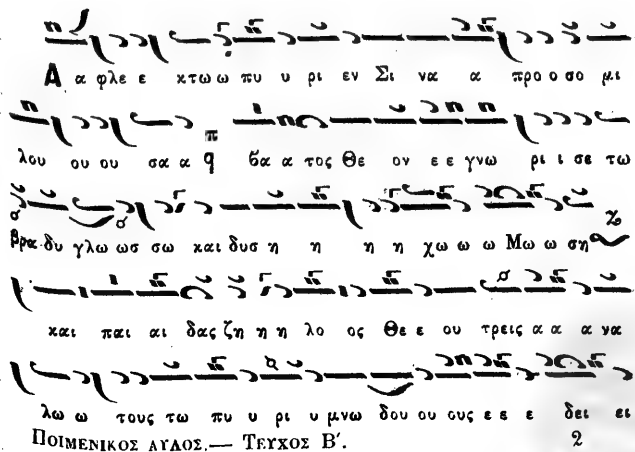 Α α φλε ε κτω ω πυ υ ρι εν Σι να α προ ο σο μι
λου ου ου σα α α βα α τος Θε ον ε ε γνω ρι ι σε τω
βρα δυ γλω ωσ σω και δυσ η η η η χω ω ω Μω ω ση
και παι αι δας ζη η η λο ος Θε ε ου τρεις α α α να
λω ω τους τω πυ υ ρι υ μνω δου ου ους ε ε ε δει ει
ΠΟΙΜΕΝΙΚΟΣ ΑΥΛΟΣ.— ΤΕΥΧΟΣ Β΄. 2